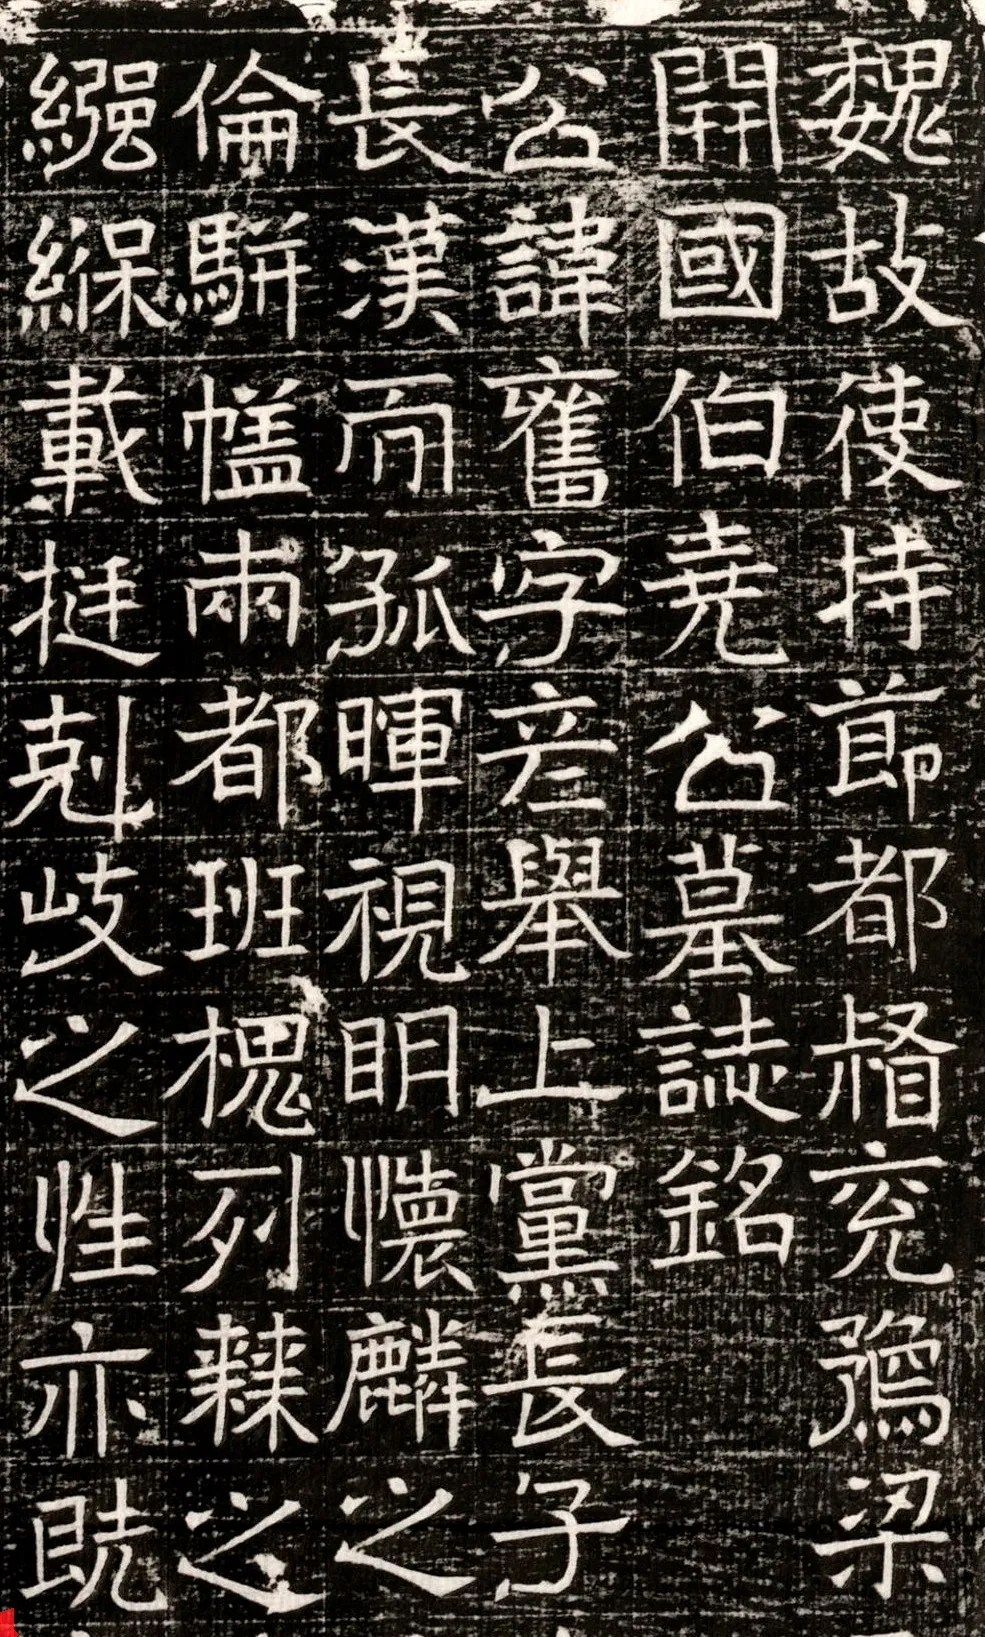 魏故使持節都督兗豫梁
開國伯堯公墓誌銘
公諱奮字彥舉上黨長子
長漢而孤暉視明懷麟之
倫駢幰兩都班槐列棘之
繦緥載挺剋岐之性亦既